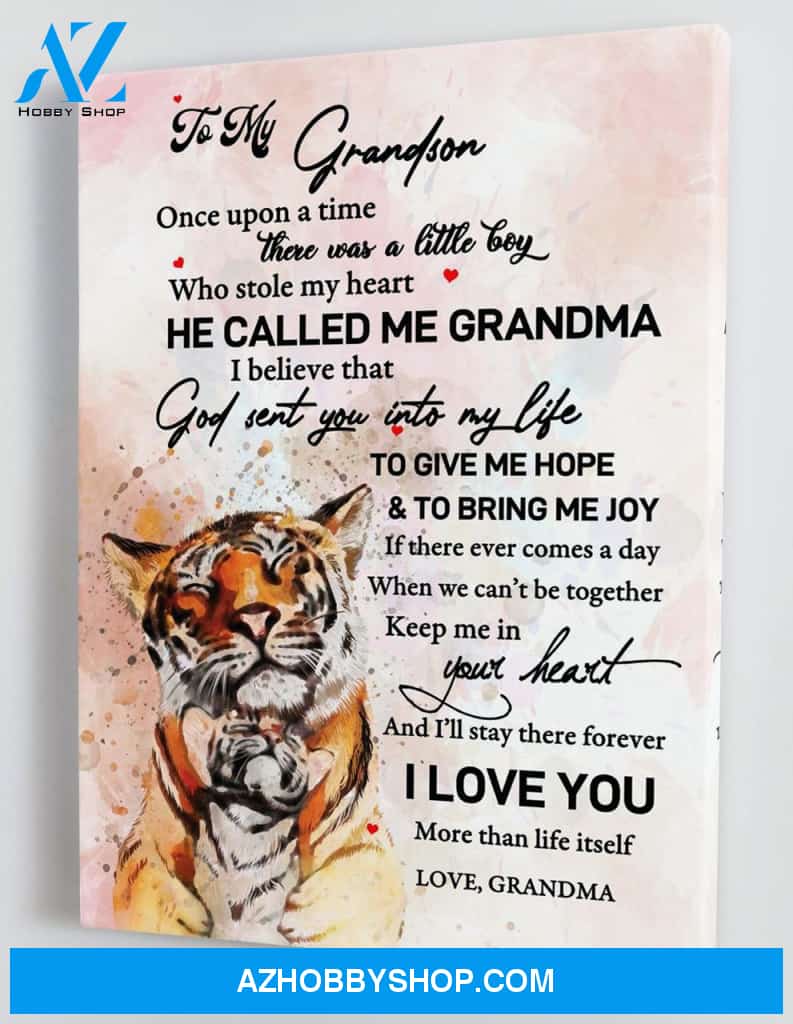 AZ
HOBBY SHOP
To My Grandson
Once upon a time
there was a little boy
Who stole my heart
HE CALLED ME GRANDMA
I believe that
God sent you into my life
TO GIVE ME HOPE
& TO BRING ME JOY
If there ever comes a day
When we can't be together
Keep me in
your heart
And I'll stay there forever
I LOVE YOU
More than life itself
LOVE, GRANDMA
AZHOBBYSHOP.COM